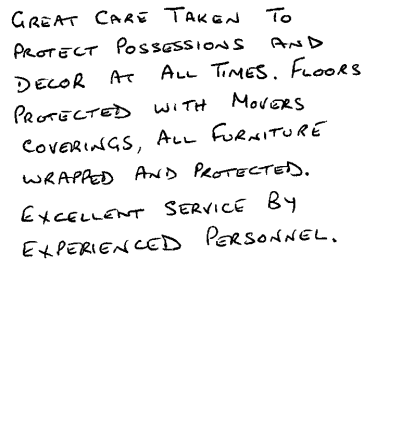 GREAT CARE TAKEN TO
PROTECT POSSESSIONS AND
DECOR AT ALL TIMES. FLOORS
PROTECTED WITH MOVERS
COVERINGS, ALL FURNITURE
WRAPPED AND PROTECTED.
EXCELLENT SERVICE BY
EXPERIENCED PERSONNEL.